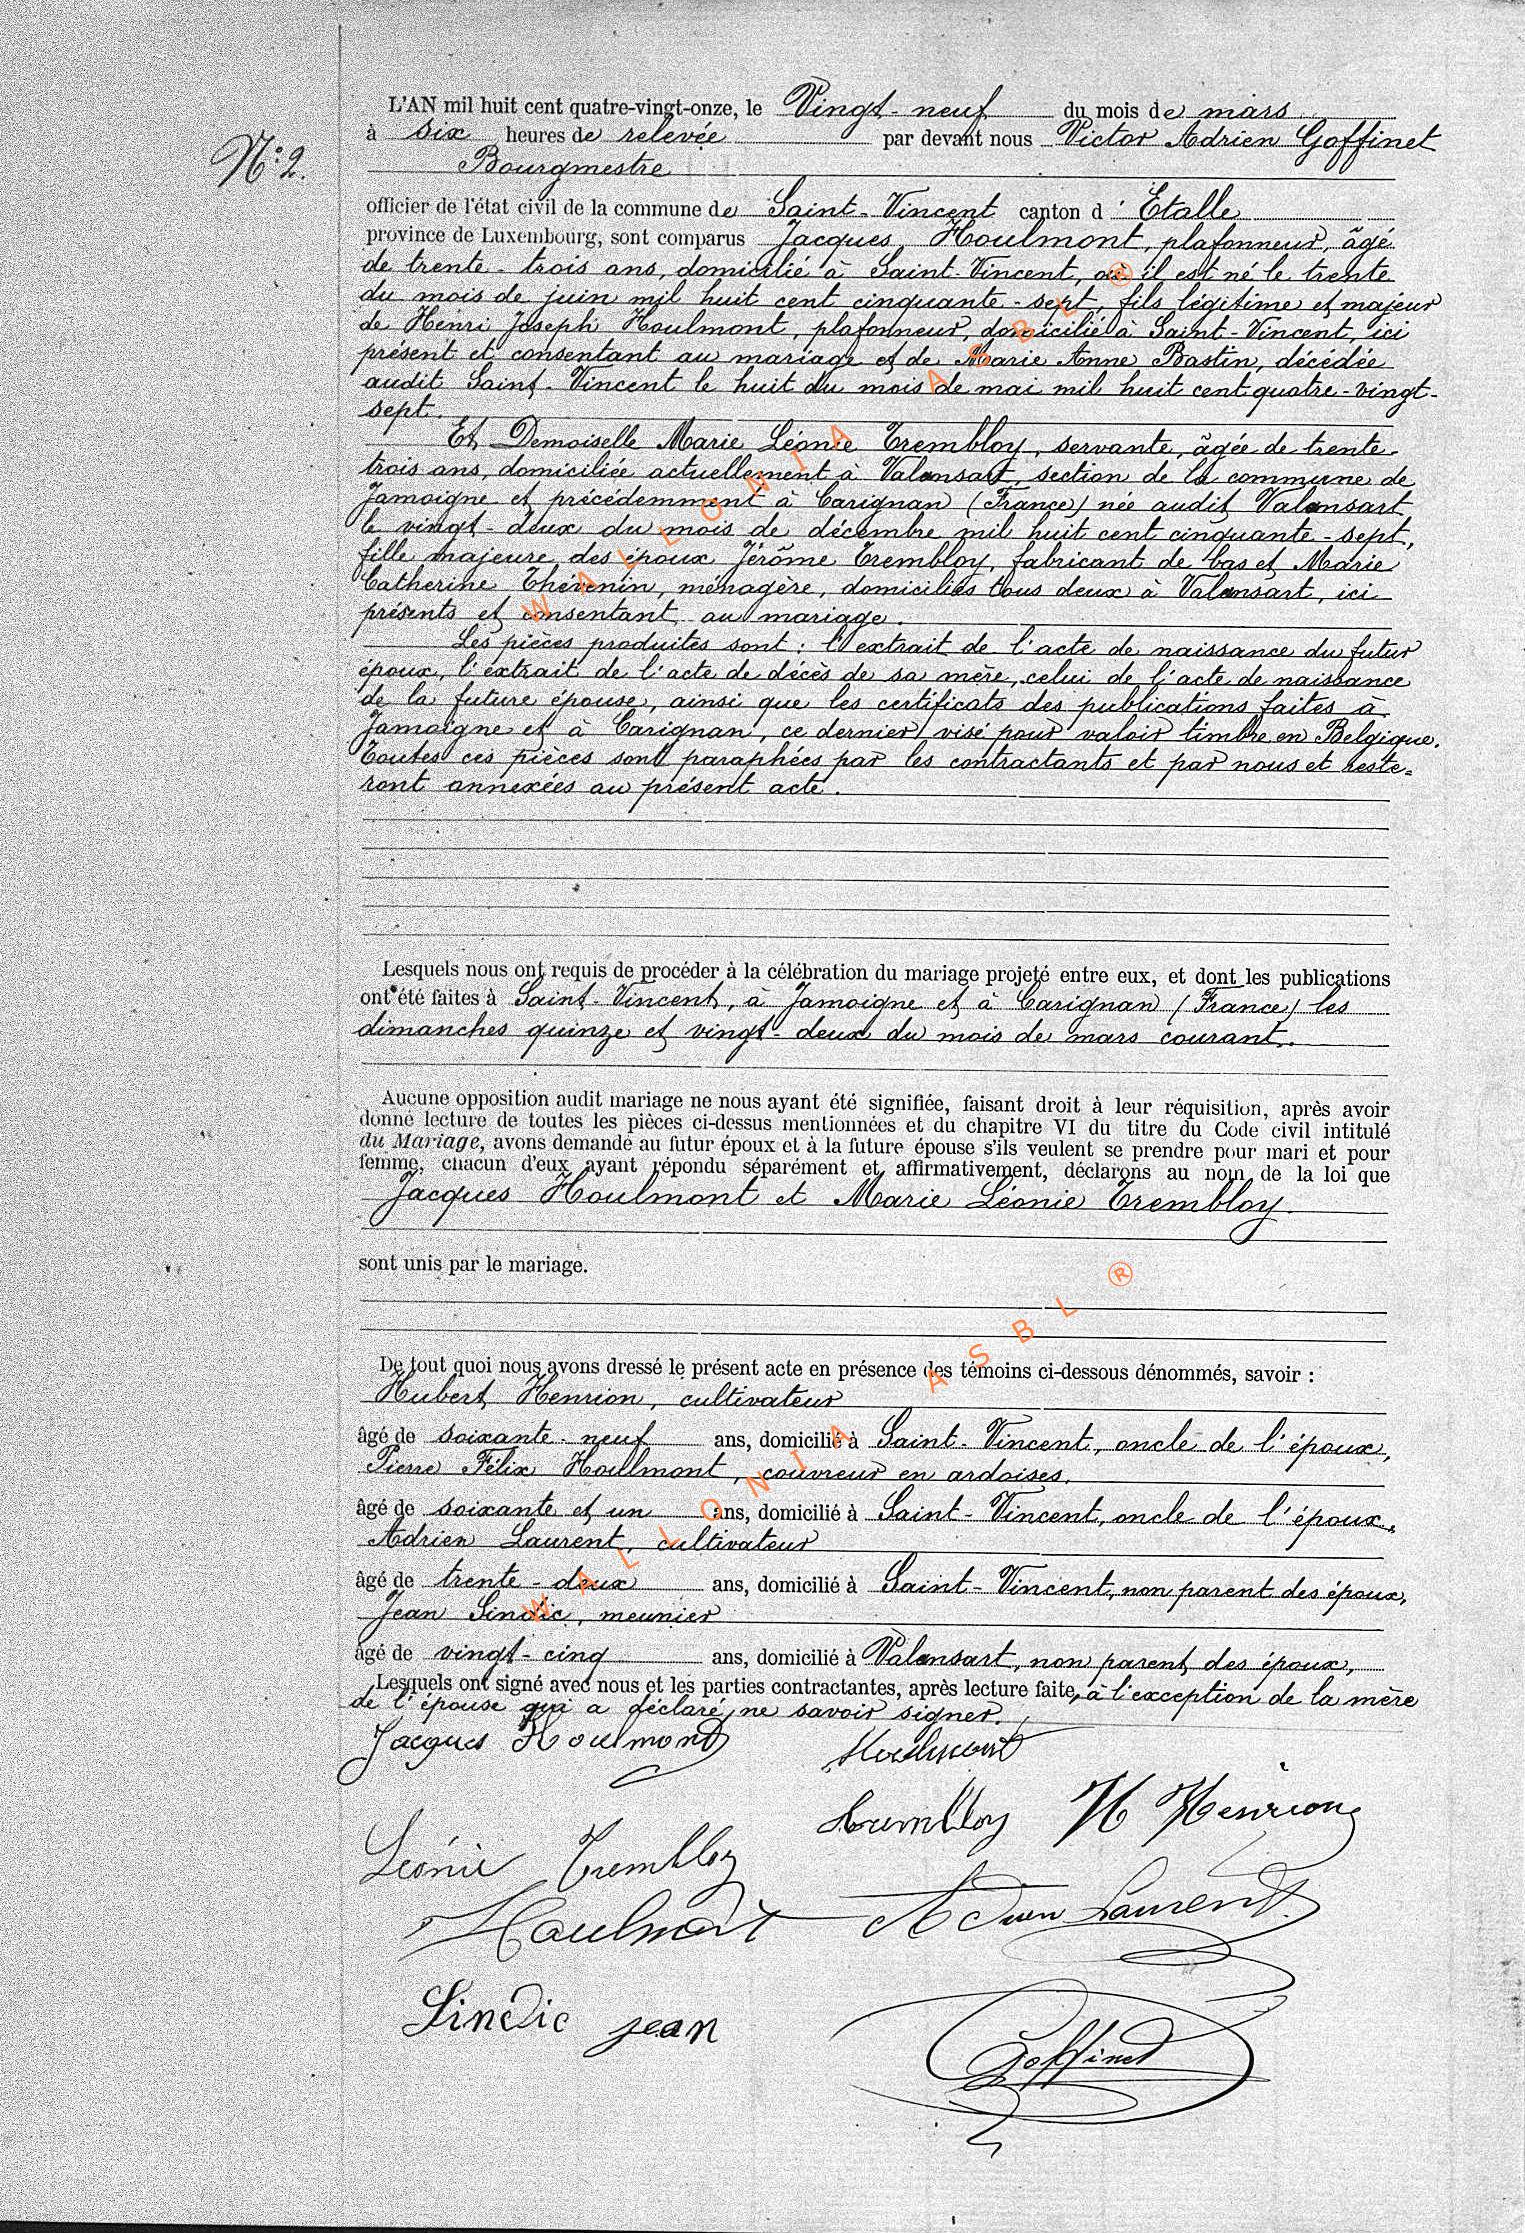 L'AN mil huit cent quatre-vingt-onze, le Vingt-neuf du mois de mars
N° 2.
à six heures de relevée par devant nous Victor Adrien Goffinet
Bourgmestre
officier de l'état civil de la commune de Saint-Vincent canton d'Etalle
province de Luxembourg, sont comparus Jacques Houlmont, plafonneur, âgé
de trente-trois ans, domicilié à Saint-Vincent, où il est né le trente
du mois de juin mil huit cent cinquante-sept, fils légitime et majeur
de Henri Joseph Houlmont, plafonneur, domicilié à Saint-Vincent, ici
présent et consentant au mariage et de Marie Anne Bastin, décédée
audit Saint-Vincent le huit du mois de mai mil huit cent quatre-vingt-
sept.
Et Demoiselle Marie Léonie Trembloy, servante, âgée de trente-
trois ans, domiciliée actuellement à Valansart, section de la commune de
Jamoigne et précédemment à Carignan (France) née audit Valansart
le vingt-deux du mois de décembre mil huit cent cinquante-sept,
fille majeure des époux Jérôme Trembloy, fabricant de bas et Marie
Catherine Thévenin, ménagère, domiciliés tous deux à Valansart, ici
présents et consentant au mariage.
Les pièces produites sont : l'extrait de l'acte de naissance du futur
époux, l'extrait de l'acte de décès de sa mère, celui de l'acte de naissance
de la future épouse, ainsi que les certificats des publications faites à
Jamoigne et à Carignan, ce dernier visé pour valoir timbre en Belgique.
Toutes ces pièces sont paraphées par les contractants et par nous et reste=
ront annexées au présent acte.
Lesquels nous ont requis de procéder à la célébration du mariage projeté entre eux, et dont les publications
ont été faites à Saint-Vincent, à Jamoigne et à Carignan (France) les
dimanches quinze et vingt-deux du mois de mars courant.
Aucune opposition audit mariage ne nous ayant été signifiée, faisant droit à leur réquisition, après avoir
donné lecture de toutes les pièces ci-dessus mentionnées et du chapitre VI du titre du Code civil intitulé
du Mariage, avons demandé au futur époux et à la future épouse s'ils veulent se prendre pour mari et pour
femme, chacun d'eux ayant répondu séparément et affirmativement, déclarons au nom de la loi que
Jacques Houlmont et Marie Léonie Trembloy.
sont unis par le mariage.
De tout quoi nous avons dressé le présent acte en présence des témoins ci-dessous dénommés, savoir :
Hubert Henrion, cultivateur
âgé de soixante-neuf ans, domicilié à Saint-Vincent, oncle de l'époux,
Pierre Félix Houlmont, couvreur en ardoises,
âgé de soixante et un ans, domicilié à Saint-Vincent, oncle de l'époux,
Adrien Laurent, cultivateur
âgé de trente-deux ans, domicilié à Saint-Vincent, non parent des époux,
Jean Sindic, meunier
âgé de vingt-cinq ans, domicilié à Valansart, non parent des époux,
Lesquels ont signé avec nous et les parties contractantes, après lecture faite, à l'exception de la mère
de l'épouse qui a déclaré ne savoir signer.
Jacques Houlmont Houlmont
Trembloy H Henrion
Léonie Trembloy
Houlmont Adrien Laurent
Sindic jean
Goffinet
WALLONIA ASBL ®
WALLONIA ASBL ®